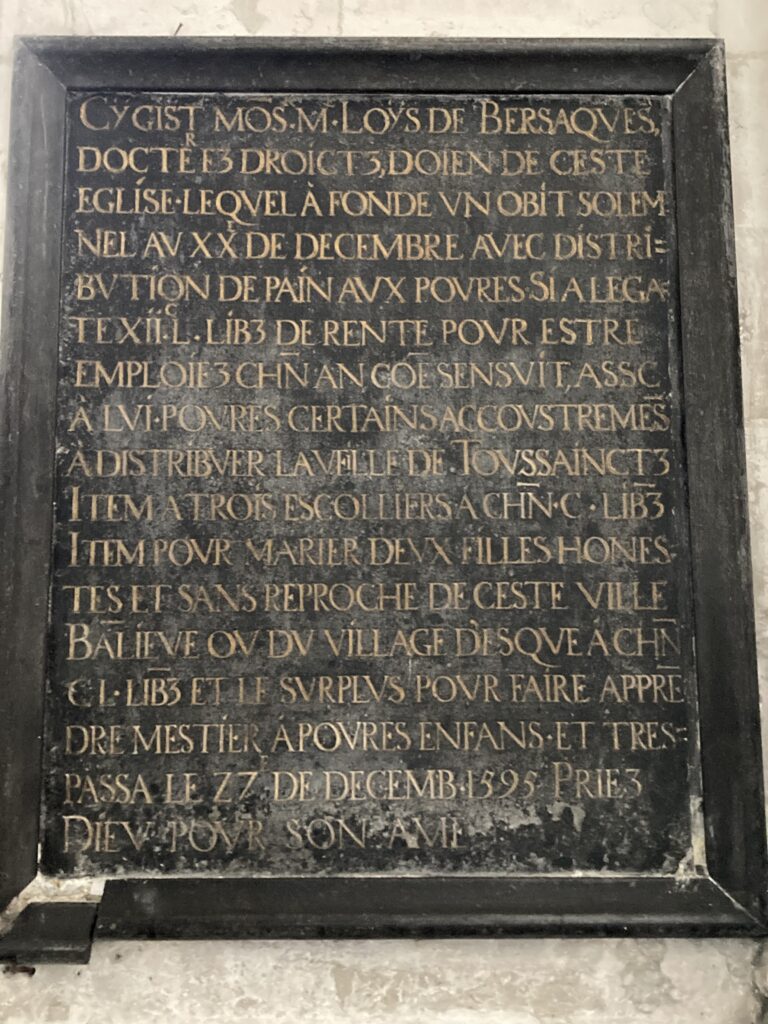 CY GIST MŌS·M·LOYS DE BERSAQVES,
DOCTEᴿ E3 DROICT3, DOIEN DE CESTE
EGLISE·LEQVEL À FONDE VN OBIT SOLEM
NEL AV XXᴱ DE DECEMBRE AVEC DISTRI=
BVTION DE PAIN AVX POVRES·SI A LEGA
TE XIIᶜ·L·LIB3 DE RENTE POVR ESTRE
EMPLOIE3 CHN̄ AN COĒ SENSVIT, ASSC̄
À LVI·POVRES CERTAINS ACCOVSTREMĒS
À DISTRIBVER LA VEILLE DE TOVSSAINCT3
ITEM A TROIS ESCOLLIERS A CHN̄·C·LIB̄3
ITEM POVR MARIER DEVX FILLES HONES=
TES ET SANS REPROCHE DE CESTE VILLE
BĀLIEVE OV DV VILLAGE D'ESQVE À CHN̄
CL·LIB̄3 ET LE SVRPLVS POVR FAIRE APPRĒ
DRE MESTIER À POVRES ENFANS·ET TRES=
PASSA LE 27ᴱ DE DECEMB·1595 PRIE3
DIEV POVR SON AME